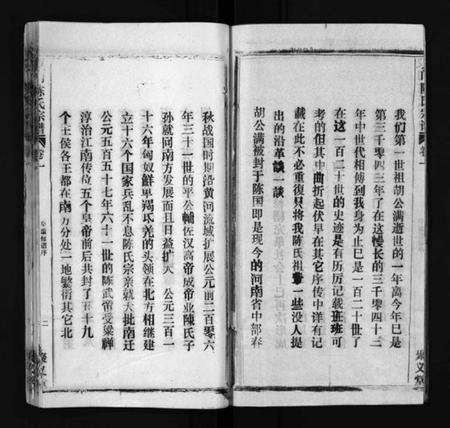 陈氏宗谱
卷一
我们第一世祖胡公满逝世的一年高今年巳是
第三千零四三年了在这慢长的三千零四十三
年中世代相傅到我身为止巳是一百二十世了
在这一百二十世的史迹是有历历记载班班可
考的但其中曲折起伏早在其它序传中详有记
载在此不必重復只将我陈氏祖輩一些没人提
出的沿革談一談
胡公满被封于陈国即是现今的河南省中部春
聚义堂
秋战国时期沿黄河流域扩展公元前二百零六
年三十一世的平公輔佐汉高帝成帝业陈氏子
孙就同南方发展而且日益扩大 公元三百一
十六年匈奴鮮卑羯氐羌的头领在北方相继建
立十六个国家兵乱不息陈氏宗亲就大批南迁
公元五百五十七年六十一世的陈武帝受梁禅
淳治江南传位五个皇帝前后共封了五十九
个王侯各王都在南方分处一地繁衍其它北
陈氏宗谱
卷一
二
聚义堂